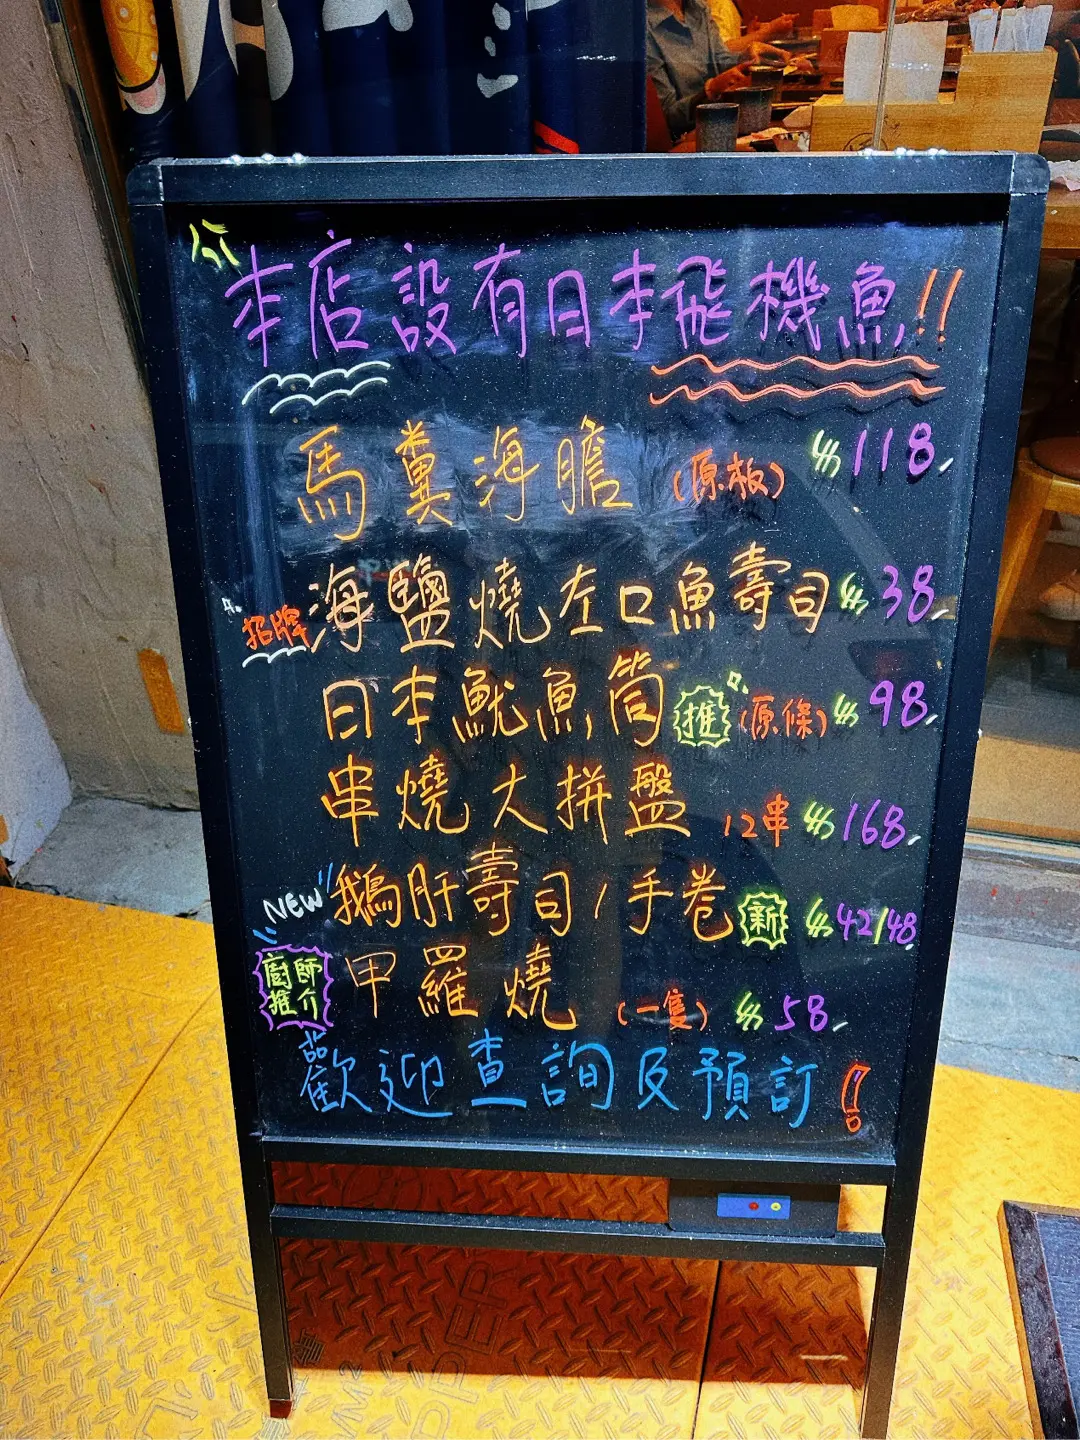 本店設有日本飛機魚!!
馬糞海膽 (原板) $118
招牌 海鹽燒左口魚壽司 $38
日本魷魚筒 推 (原條) $98
串燒大拼盤 12串 $168
NEW 鵝肝壽司/手卷 新 $42/48
廚師推介 甲羅燒 (一隻) $58
歡迎查詢及預訂!